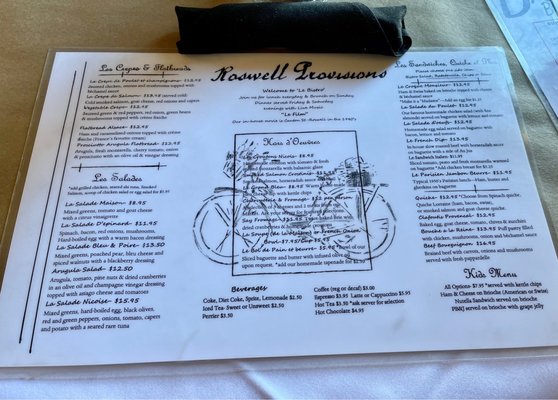 Les Crepes & Flatbreads
La Crepe de Poulet et champignon $12.95
Roasted chicken, onions and mushrooms topped with
béchamel sauce
La Crepe de Salmon $13.95 served cold:
Cold smoked salmon, goat cheese, red onions and capers
Vegetable Crepe $12.95
Roasted green & red peppers, red onion, green beans
& mushrooms topped with
Flatbread Alsace $12.95
Ham and caramelized onions topped with crème
fraiche (France's favorite treat)
Prosciutto Arugula Flatbread $12.95
Arugula, fresh mozzarella, cherry tomato, onion
& prosciutto with an olive oil and vinegar dressing
Les Salades
*Add grilled chicken, seared ahi tuna, Smoked
Salmon, scoop of chicken salad or egg salad for $3.95
La Salade Maison $8.95
Mixed greens, tomato and goat cheese
with a citrus vinaigrette
La Salade D'epinards $11.95
Spinach, bacon, red onions, mushrooms,
Hard-boiled egg with a warm bacon dressing
La Salade Bleu & Poire $13.50
Mixed greens, poached pear, bleu cheese and
spiced walnuts with a blackberry dressing
Arugula Salad- $12.50
Arugula, tomato, pine nuts & dried cranberries
in an olive oil and champagne vinegar dressing
topped with asiago cheese and tomatoes
La Salade Nicoise- $15.95
Mixed greens, hard-boiled egg, black olives,
red and green peppers, onions, tomato, capers
and potato with a seared rare tuna
Roswell Provisions
Welcome to "Le Bistro"
Join us for lunch everyday & Brunch on Sunday
Dinner served Friday & Saturday
evenings with Live Music
"Le Film"
Our in-house movie is Canton St-Roswell in the 1980's
Hors d'Oeuvres
$8.95
with tomato & fresh
mozzarella with balsamic glaze
Salmon
salmon, horseradish sauce and
Le Grand Bleu $8.95 Warm
with kettle chips
Fromage
of 3 cheeses and
Ask your server for
Soy
with
dressing
La Soupe
Bowl $7.95/Cup $5.95
Le Bol de Pain et beurre $5.95 bowl of our
Sliced baguette and butter with infused olive oil
upon request. *add our homemade tapenade for $2.50
Beverages
Coke, Diet Coke, Sprite, Lemonade $2.50
Iced Tea- Sweet or Unsweet $2.50
Perrier $3.50
Coffee (reg or decaf) $3.00
Espresso $3.95 Latte or Cappuccino $5.95
Hot Tea $3.50 *ask server for selection
Hot Chocolate $4.95
Les Sandwiches, Quiche et
Please choose one side item
Le Croque Monsieur- $12.95
Ham & Swiss baked with brioche topped with
béchamel sauce
*Make it a "Madame"- Add an egg for $1.25
La Salade de Poulet- $12.95
Our famous homemade chicken salad (w/
almonds) served on baguette with lettuce and tomato
La Salade d'oeuf- $12.95
Homemade egg salad served on baguette with
bacon, lettuce and tomato
Le French Dip- $13.95
Thin sliced roast beef with horseradish sauce
on baguette with a side of Au Jus
Le Sandwich Italien- $11.95
Sliced tomato, pesto and fresh mozzarella warmed
on baguette *add ham for $1.25
Le Parisien Jambon Beurre- $11.95
Typical 1950's Parisian lunch—Ham, butter and
gherkins on baguette
Quiche- $12.95 *Choose from Spinach quiche,
Quiche Lorraine (ham, bacon, swiss),
or smoked salmon and goat cheese quiche.
Clafoutis Provencal- $12.95
Baked egg, goat cheese, olives, chives & zucchini
Bouche a la Reine- $13.95 Puff pastry filled
with chicken, mushrooms, onion and béchamel sauce
Beef Bourguignon- $15.95
Braised beef with carrots, onions and mushrooms
served with fresh pappardelle
Kids Menu
All Options- $7.95 *served with kettle chips
Ham & Cheese on Brioche (American or Swiss)
Nutella Sandwich served on brioche
PB&J served on brioche with grape jelly